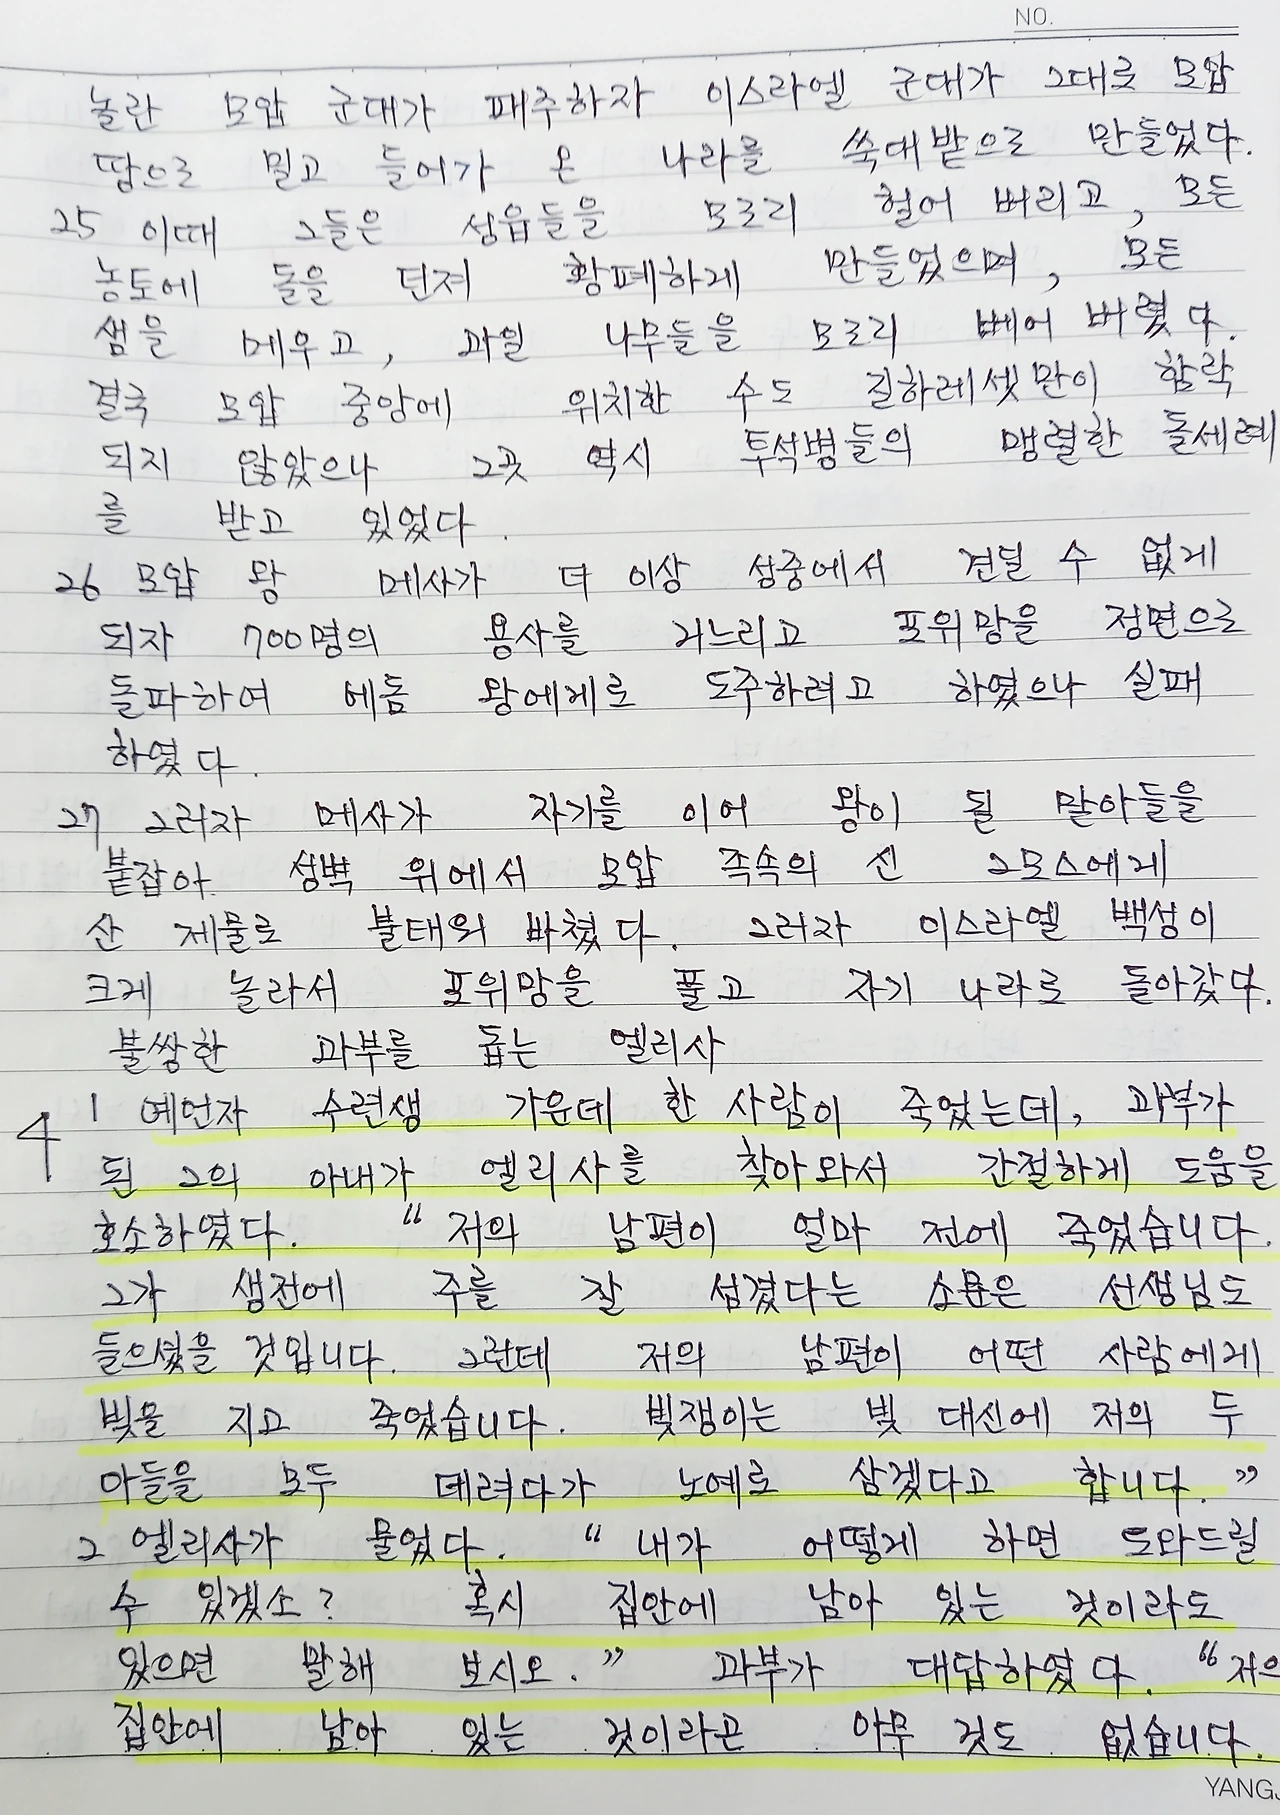 NO.
놀란 모압 군대가 패주하자 이스라엘 군대가 그대로 모압
땅으로 밀고 들어가 온 나라를 쑥대밭으로 만들었다.
25 이때 그들은 성읍들을 모조리 헐어 버리고, 모든
농토에 돌을 던져 황폐하게 만들었으며, 모든
샘을 메우고, 과일 나무들을 모조리 베어 버렸다.
결국 모압 중앙에 위치한 수도 길하레셋만이 함락
되지 않았으나 그곳 역시 투석병들의 맹렬한 돌세례
를 받고 있었다.
26 모압 왕 메사가 더 이상 성중에서 견딜 수 없게
되자 700명의 용사를 거느리고 포위망을 정면으로
돌파하여 에돔 왕에게로 도주하려고 하였으나 실패
하였다.
27 그러자 메사가 자기를 이어 왕이 될 맏아들을
붙잡아 성벽 위에서 모압 족속의 신 그모스에게
산 제물로 불태워 바쳤다. 그러자 이스라엘 백성이
크게 놀라서 포위망을 풀고 자기 나라로 돌아갔다.
불쌍한 과부를 돕는 엘리사
4 1 예언자 수련생 가운데 한 사람이 죽었는데, 과부가
된 그의 아내가 엘리사를 찾아와서 간절하게 도움을
호소하였다. “저의 남편이 얼마 전에 죽었습니다.
그가 생전에 주를 잘 섬겼다는 소문은 선생님도
들으셨을 것입니다. 그런데 저의 남편이 어떤 사람에게
빚을 지고 죽었습니다. 빚쟁이는 빚 대신에 저의 두
아들을 모두 데려다가 노예로 삼겠다고 합니다.”
2 엘리사가 물었다. “내가 어떻게 하면 도와드릴
수 있겠소? 혹시 집안에 남아 있는 것이라도
있으면 말해 보시오.” 과부가 대답하였다. “저의
집안에 남아 있는 것이라곤 아무 것도 없습니다.